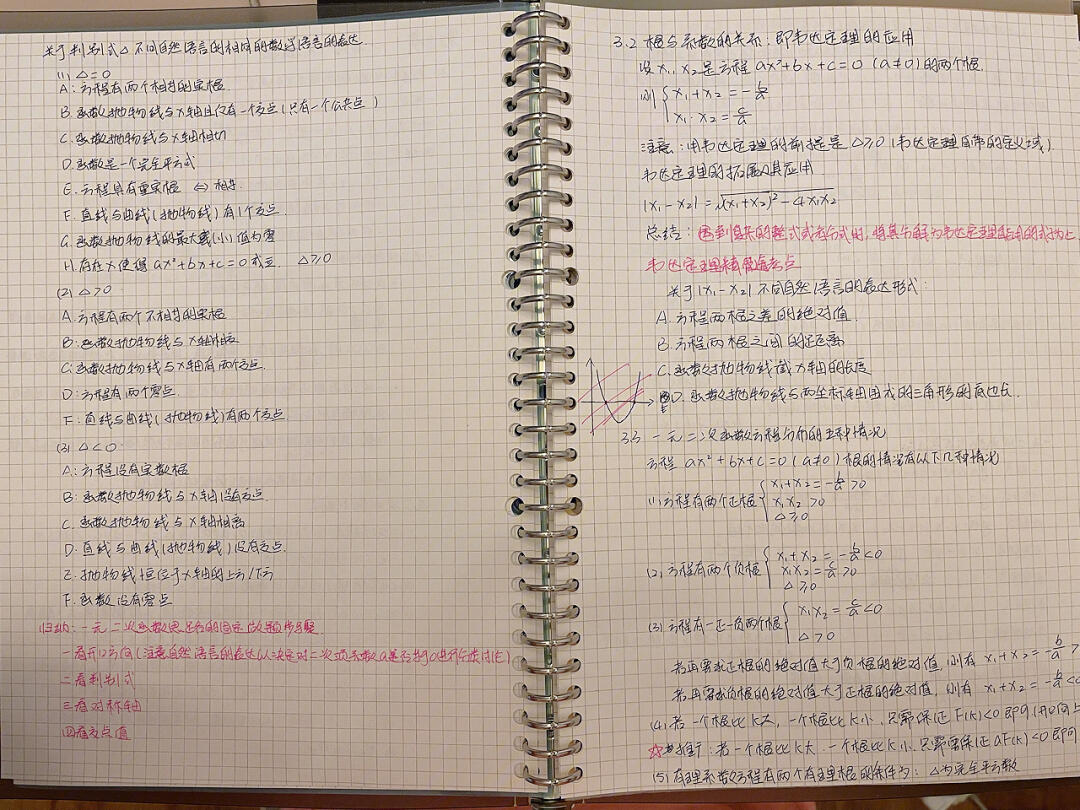 关于判别式△不同自然语言的相同的数学语言的表达
(1) △=0
A: 方程有两个相等的实根
B. 函数抛物线与x轴且仅有一个交点(只有一个公共点)
C. 函数抛物线与x轴相切
D. 函数是一个完全平方式
E. 方程具有重实根 ⇔ 相等.
F. 直线与曲线(抛物线)有1个交点.
G. 函数抛物线的最大(小)值为零
H. 存在x使得 ax²+bx+c=0成立 △≥0
(2) △>0
A. 方程有两个不相等的实根
B: 函数抛物线与x轴相交
C: 函数抛物线与x轴有两个交点.
D: 方程有两个零点.
F: 直线与曲线(抛物线)有两个交点
(3) △<0
A: 方程没有实数根
B: 函数抛物线与x轴没有交点.
C. 函数抛物线与x轴相离
D. 直线与曲线(抛物线)没有交点.
E. 抛物线恒位于x轴的上方/下方
F. 函数没有零点
归纳: 一元二次函数思考的固定做题步骤
一看开口方向(注意自然语言的表达以决定对二次项系数a是否等于0进行分类讨论)
二看判别式
三看对称轴
四看交点值
3.2 根与系数的关系: 即韦达定理的应用
设x₁, x₂是方程 ax²+bx+c=0 (a≠0)的两个根.
则 { x₁+x₂=-b/a
x₁·x₂=c/a
注意: 用韦达定理的前提是△≥0 (韦达定理自带的定义域).
韦达定理的拓展及其应用
|x₁-x₂|=√(x₁+x₂)²-4x₁x₂
总结: 遇到复杂的整式或者分式时, 将其分解为韦达定理能占用的式子为上
韦达定理精髓考点
关于|x₁-x₂|不同自然语言的表达形式:
A. 方程两根之差的绝对值.
B. 方程两根之间的距离
C. 函数抛物线截x轴的长度
D. 函数抛物线与两坐标轴围成的三角形的底边长.
3.3 一元二次函数方程分布的五种情况
方程 ax²+bx+c=0 (a≠0)根的情况有以下几种情况
(1) 方程有两个正根 { x₁+x₂=-b/a>0
x₁x₂>0
△≥0
(2) 方程有两个负根 { x₁+x₂=-b/a<0
x₁x₂=c/a>0
△≥0
(3) 方程有一正一负两个根 { x₁x₂=c/a<0
△>0
若再要求正根的绝对值大于负根的绝对值, 则有 x₁+x₂=-b/a>
若再要求负根的绝对值大于正根的绝对值, 则有 x₁+x₂=-b/a<0
(4) 若一个根比k大, 一个根比k小, 只需保证F(k)<0即可(开口向上
☆推广: 若一个根比k大, 一个根比k小, 只需要保证aF(k)<0即可
(5) 有理系数方程有两个有理根的条件为: △为完全平方数